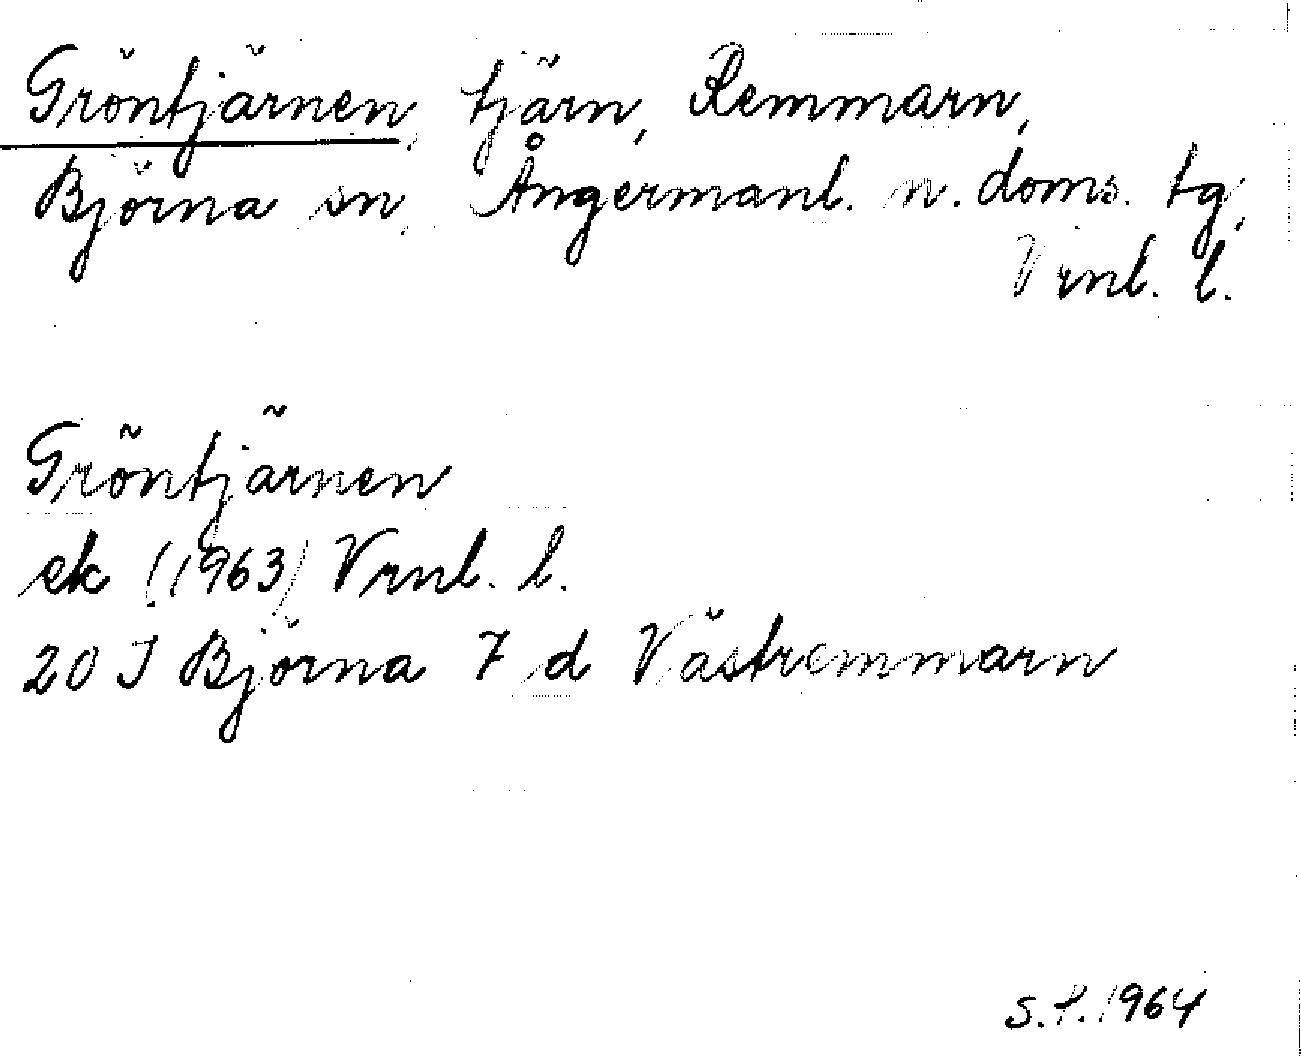 Gröntjärnen, tjärn, Remmarn,
Björna sn, Ångermanl. n. doms. tg,
Vrnl. l.
Gröntjärnen
ek (1963) Vrnl. l.
20 I Björna 7 d Västremmarn
S.P. 1964